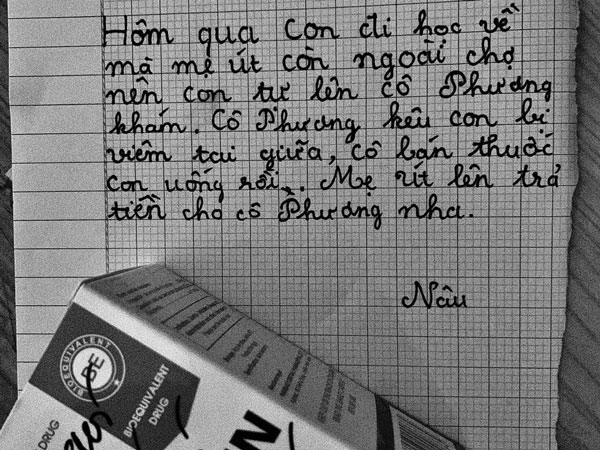 Hôm qua con đi học về
mà mẹ út còn ngoài chợ
nên con tự lên cô Phương
khám. Cô Phương kêu con bị
viêm tai giữa, cô bán thuốc
con uống rồi. Mẹ út lên trả
tiền cho cô Phương nha.
Nâu
BIOEQUIVALENT
BE
BIOEQUIVALENT
DRUG
DRUG